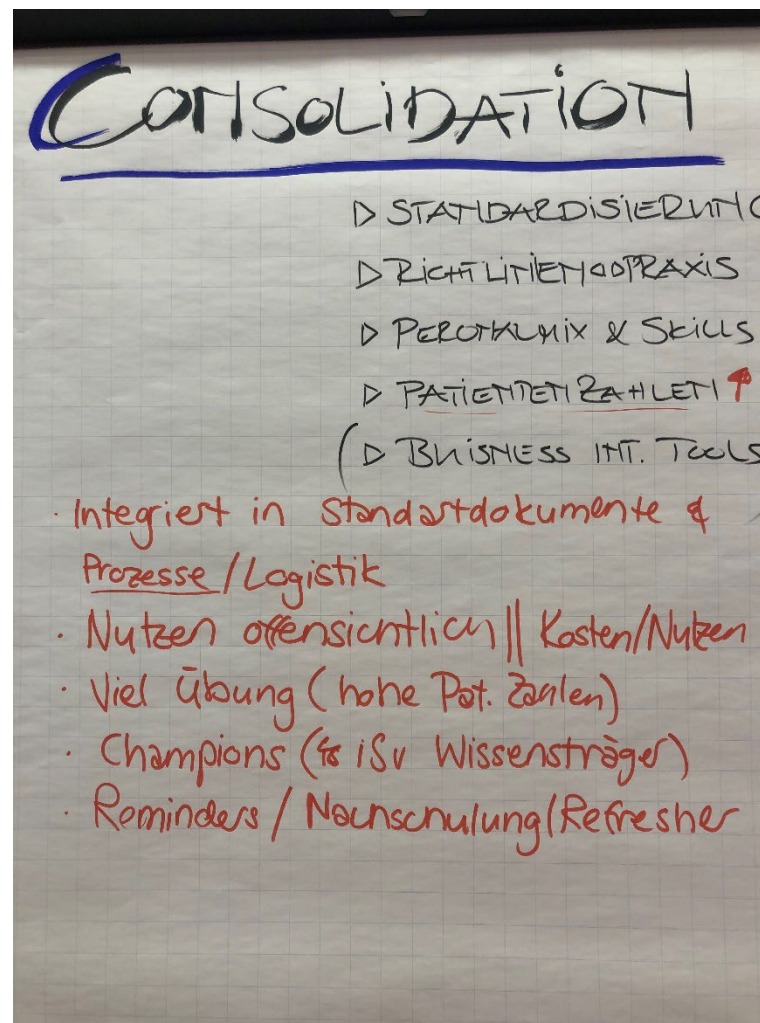 CONSOLIDATION
▷ STANDARDISIERUNG
▷ RICHTLINIEN PRAXIS
▷ PERONALMIX & SKILLS
▷ PATIENTENZAHLEN ↑
(▷ BUISNESS INT. TOOLS
· Integriert in Standartdokumente &
Prozesse / Logistik
· Nutzen offensichtlich || Kosten/Nutzen
· Viel Übung (hohe Pat. Zahlen)
· Champions (iSv Wissensträger)
· Reminders / Nachschulung / Refresher